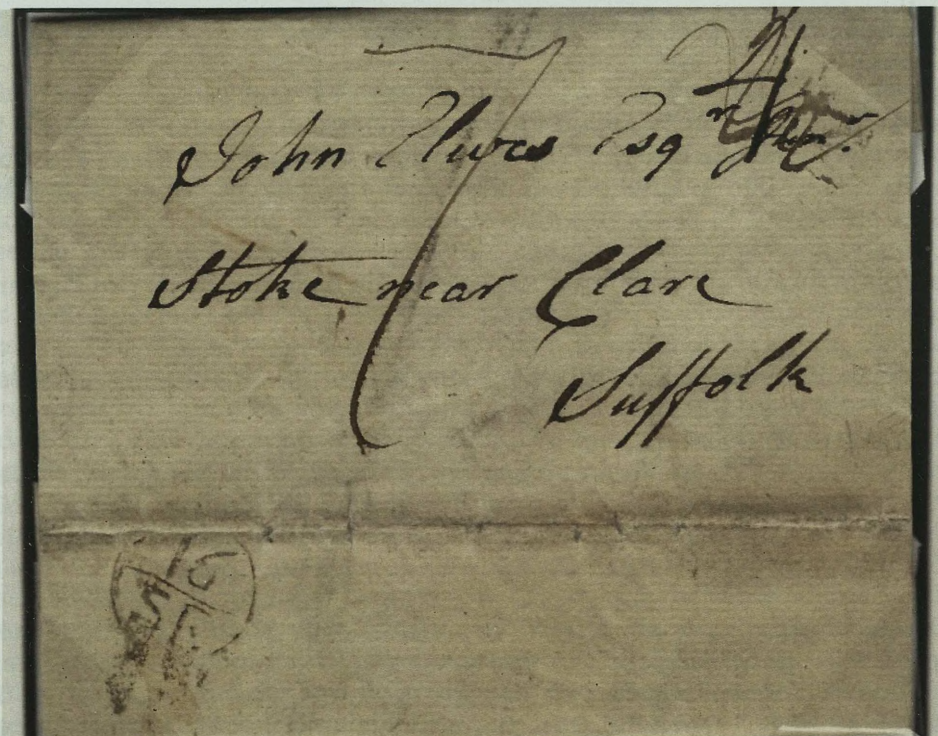 John Elwes Esqr
Stoke near Clare
Suffolk
7